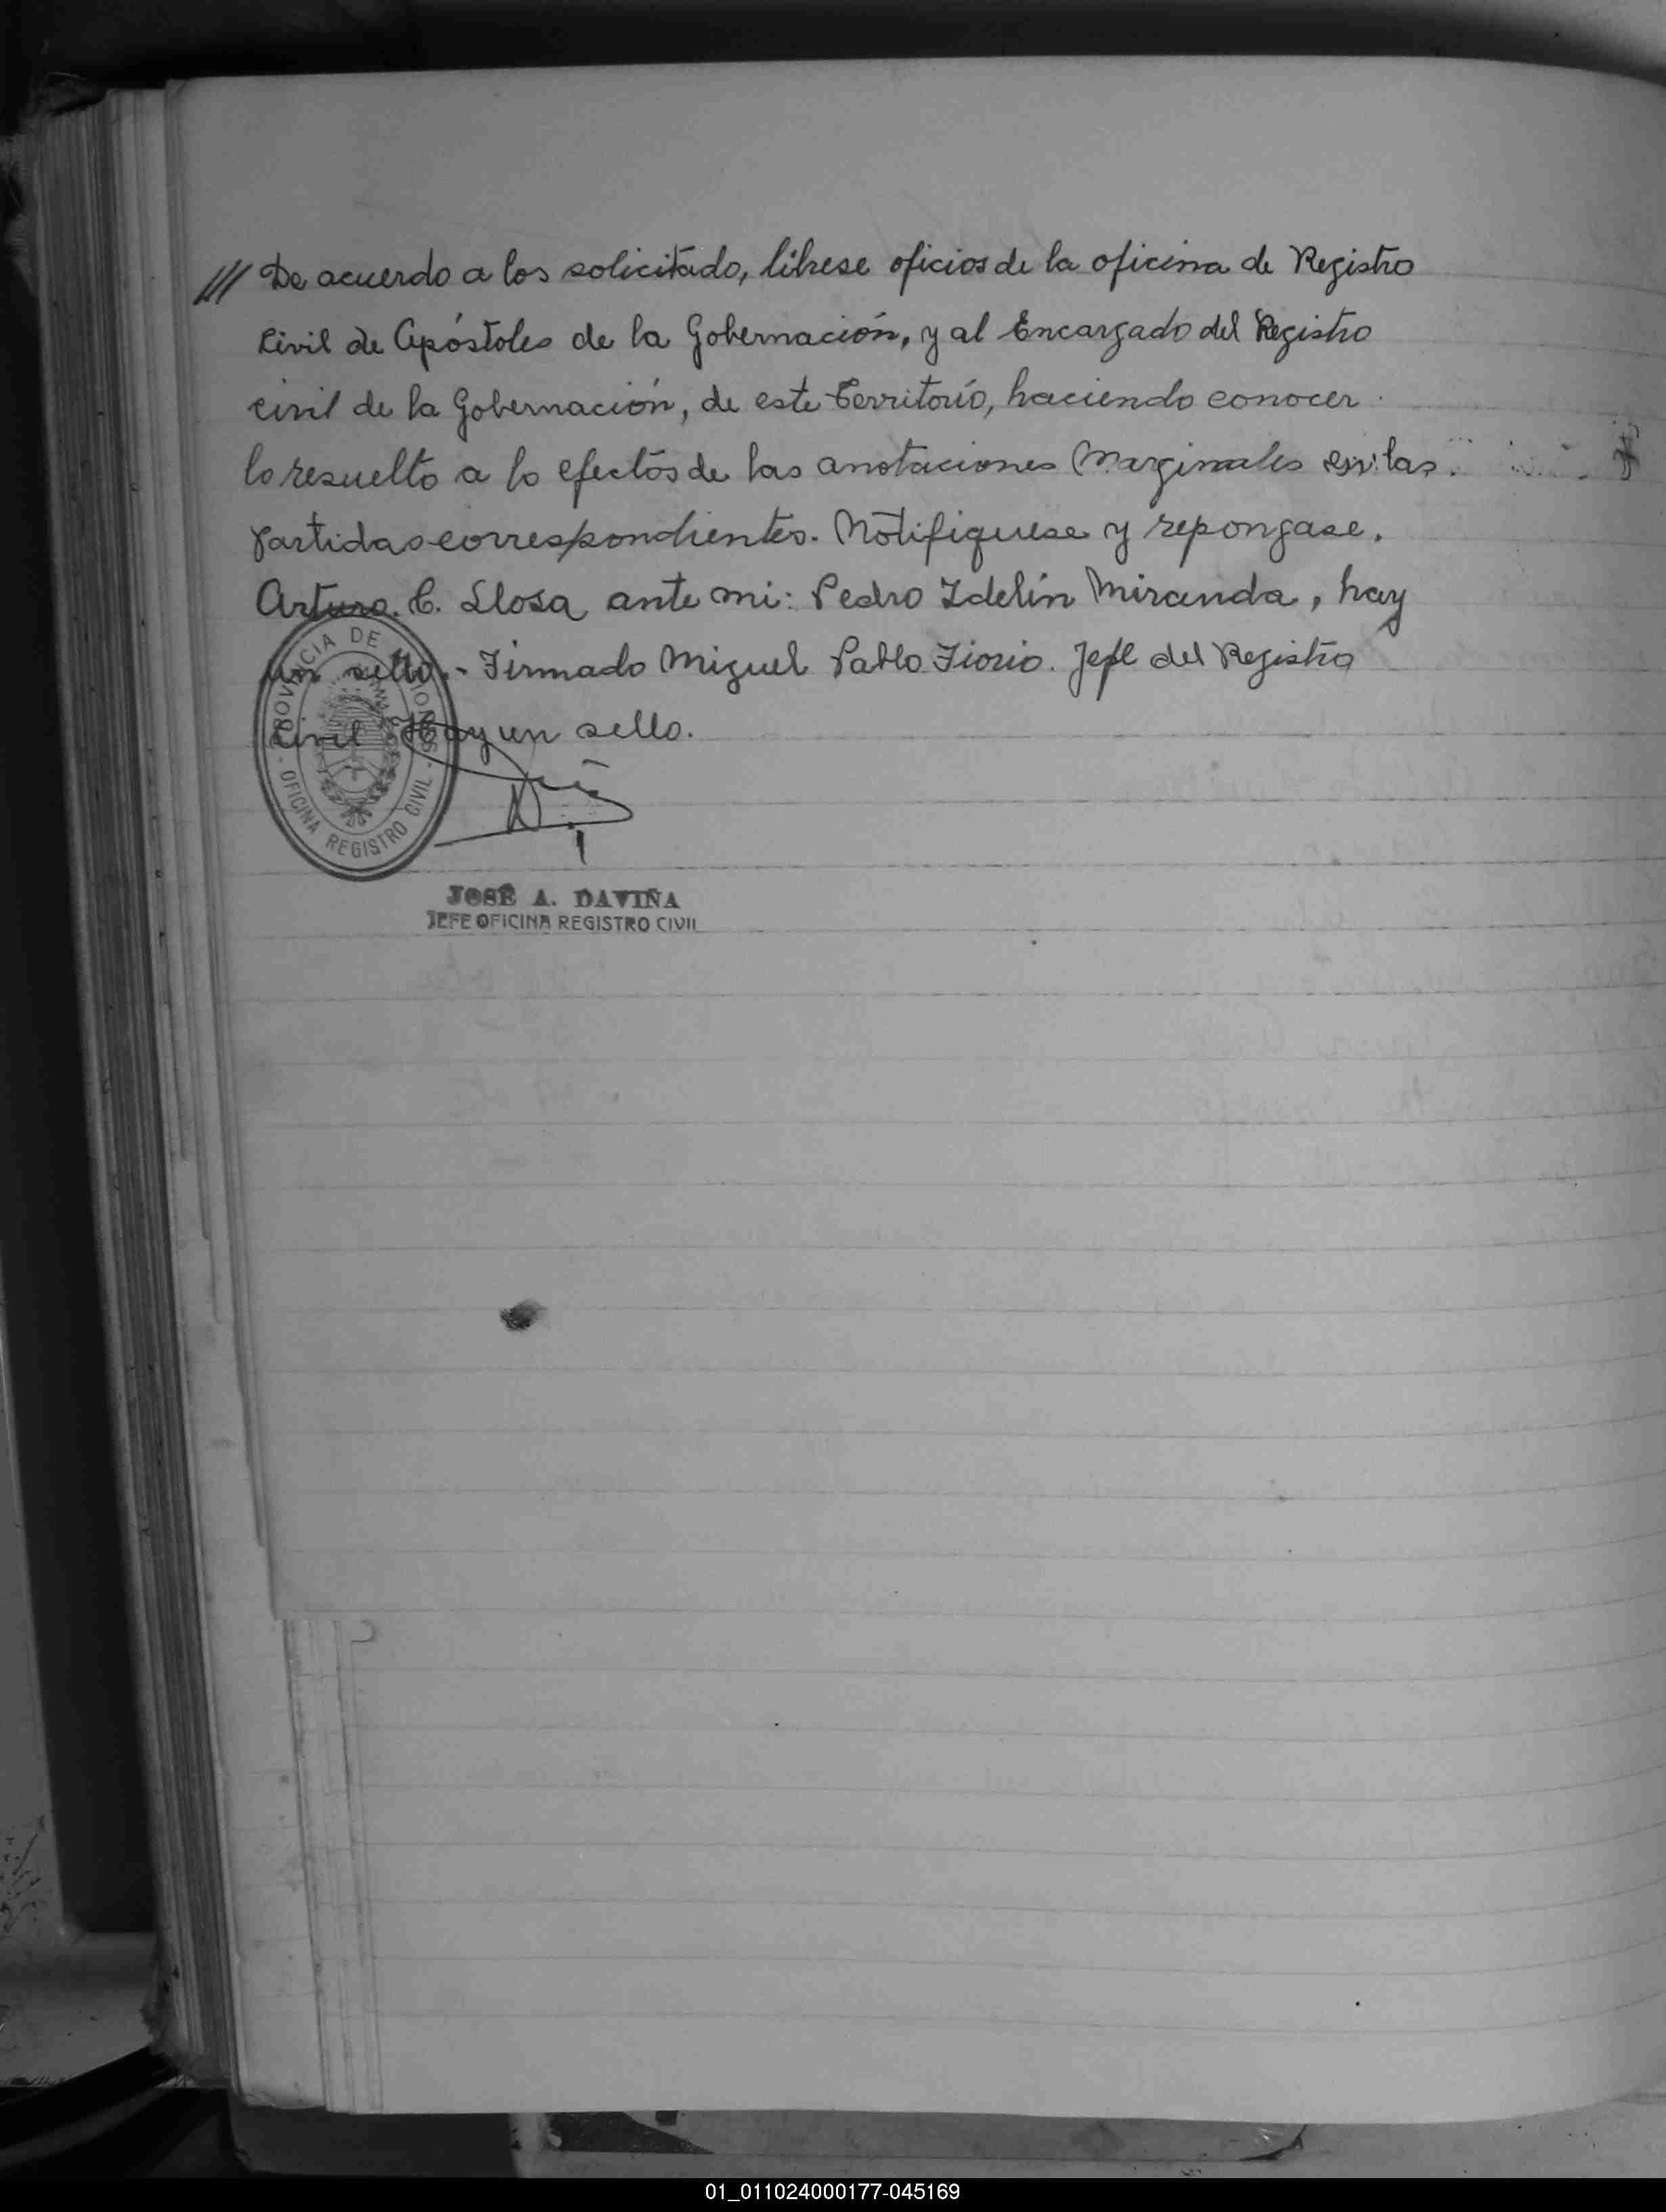 /// De acuerdo a los solicitado, líbrese oficios de la oficina de Registro
Civil de Apóstoles de la Gobernación, y al Encargado del Registro
civil de la Gobernación, de este Territorio, haciendo conocer
lo resuelto a lo efectos de las anotaciones Marginales en las
partidas correspondientes. Notifiquese y repongase.
Arturo. C. Llosa ante mi: Pedro Idelín Miranda, hay
un sello.- Firmado Miguel Pablo Fiorio. Jefe del Registro
Civil Hay un sello.
PROVINCIA DE MISIONES
- OFICINA REGISTRO CIVIL -
JOSÉ A. DAVIÑA
JEFE OFICINA REGISTRO CIVIL
01_011024000177-045169